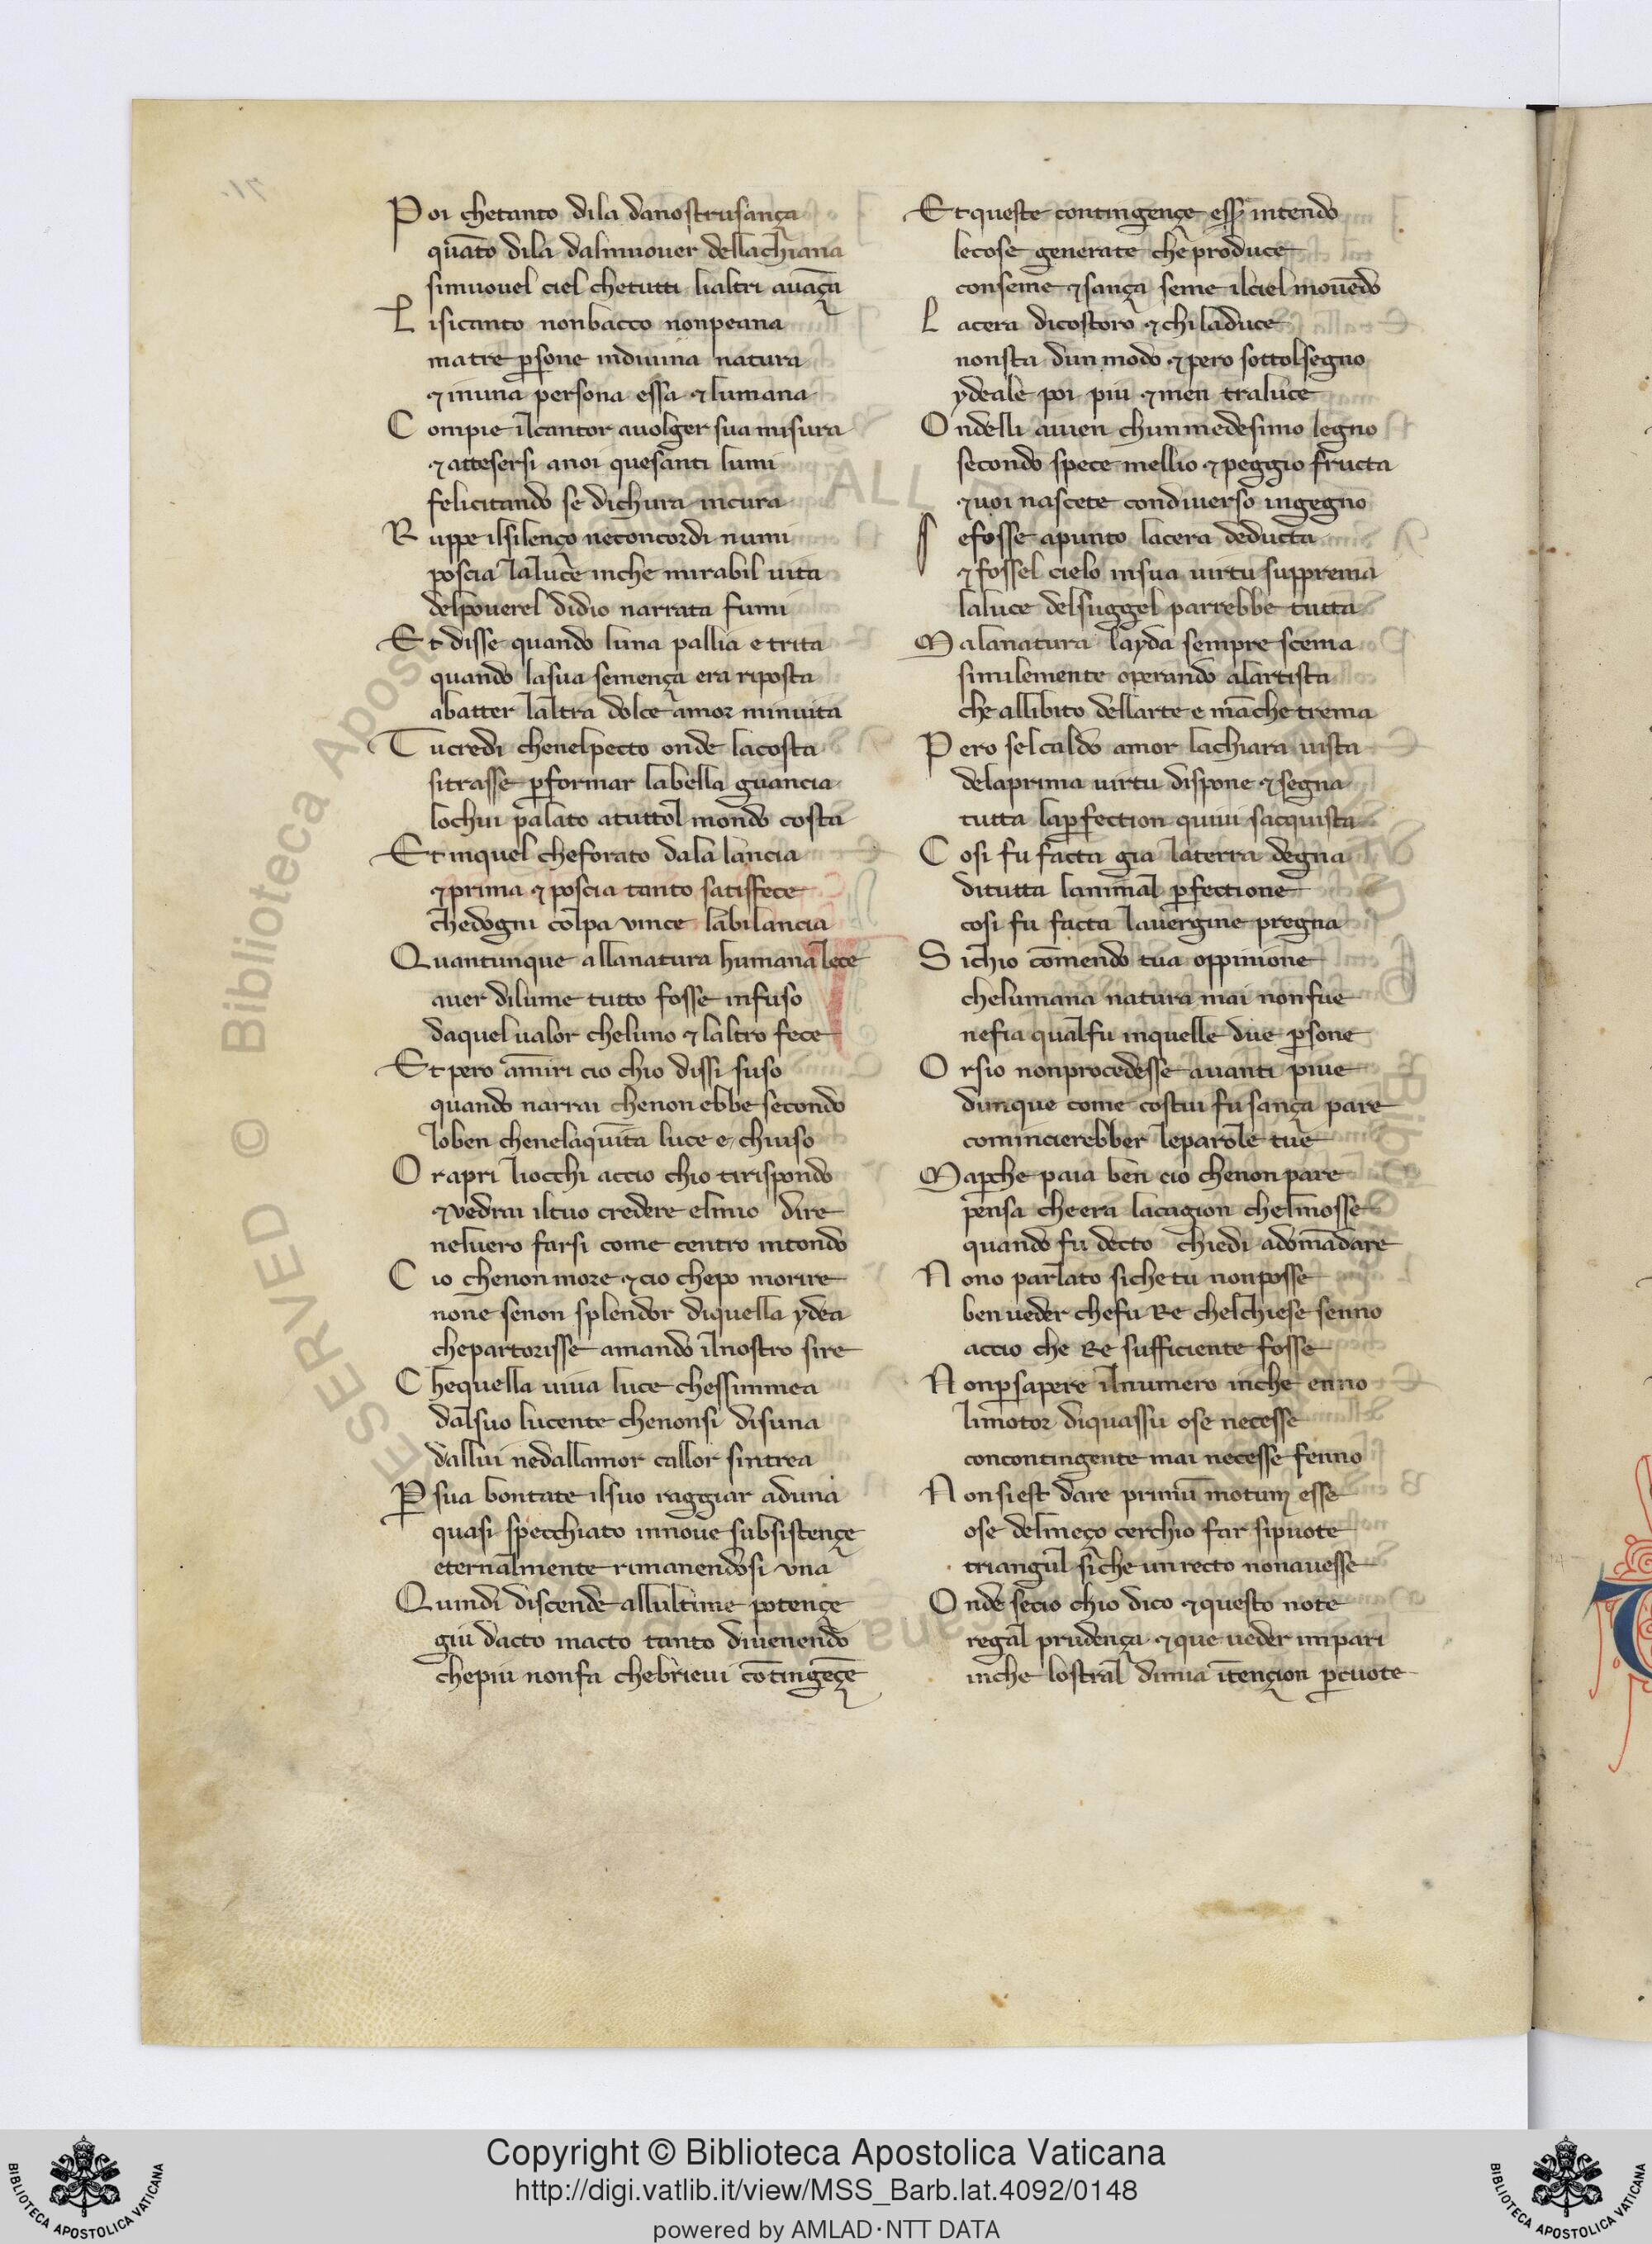 Poi chetanto dila danostrusança
quāto dila dalmuouer dellachiana
simuouel ciel chetutti lialtri auāça
Lisicanto nonbacco nonpeana
ma tre ꝑsone indiuina natura
⁊ inuna persona essa ⁊ lumana
Compie ilcantor auolger sua misura
⁊ attesersi anoi quesanti lumi
felicitando se dichura incura
Ruppe ilsilenço neconcordi numi
poscia laluce inche mirabil uita
delpouerel didio narrata fumi
Et disse quando luna pallia e trita
quando lasua semença era riposta
abatter laltra dolce amor minuita
Tucredi chenelpecto onde lacosta
sitrasse ꝑformar labella guancia
lochui palato atuttol mondo costa
Et inquel cheforato dala lancia
⁊ prima ⁊ poscia tanto satisfece
chedogni colpa vince labilancia
Quantunque allanatura humana lece
auer dilume tutto fosse infuso
daquel ualor cheluno ⁊ laltro fece
Et pero āmiri cio chio dissi suso
quando narrai chenon ebbe secondo
loben chenelaquīta luce e chiuso
Orapri liocchi accio chio tirispondo
⁊ vedrai iltuo credere elmio dire
neluero farsi come centro intondo
Cio chenon more ⁊ cio chepo morire
none senon splendor diquella ydea
chepartorisse amando ilnostro sire
Chequella uiua luce chessimmea
dalsuo lucente chenonsi disuna
dallui nedallamor callor sintrea
Ꝑ sua bontate ilsuo raggiar aduna
quasi specchiato innoue subsistençe
eternalmente rimanendosi vna
Quindi discende allultime potençe
giu dacto inacto tanto diuenendo
chepiu nonfa chebrieui cōtingēçe
Et queste contingençe esse intendo
lecose generate che produce
conseme ⁊ sança seme ilciel mouēdo
Lacera dicostoro ⁊ chi laduce
nonsta dun modo ⁊ pero sottolsegno
ydeale poi piu ⁊ men traluce
Ondelli auien chun medesimo legno
secondo spece mellio ⁊ peggio fructa
⁊ uoi nascete condiuerso ingegno
Sefosse apunto lacera deducta
⁊ fossel cielo insua uirtu supprema
laluce delsuggel parrebbe tutta
Malanatura layda sempre scema
similemente operando alartista
che allibito dellarte e māche trema
Pero selcaldo amor lachiara uista
delaprima uirtu dispone ⁊ segna
tutta laꝑfection quiui sacquista
Cosi fu facta gia laterra degna
ditutta lanimal ꝑfectione
cosi fu facta lauergine pregna
Sichio cōmendo tua oppinione
chelumana natura mai nonfue
nefia qualfu inquelle due ꝑsone
Orsio nonprocedesse auanti piue
dunque come costui fu sança pare
comincierebber leparole tue
Maꝑche paia ben cio chenon pare
pensa cheera lacagion chelmosse
quando fu decto chiedi adomādare
Nono parlato sichetu nonposse
ben ueder chefu Re chelchiese senno
accio che Re sufficiente fosse
Nonꝑsapere ilnumero inche enno
limotor diquassu ose necesse
concontingente mai necesse fenno
Nonsi est dare primū motum esse
ose delmeço cerchio far sipuote
triangul siche un recto nonauesse
Onde secio chio dico ⁊ questo note
regal prudença ⁊ que ueder impari
inche lostral dimia ītençion ꝑcuote
Copyright © Biblioteca Apostolica Vaticana
http://digi.vatlib.it/view/MSS_Barb.lat.4092/0148
powered by AMLAD·NTT DATA
BIBLIOTECA APOSTOLICA VATICANA
BIBLIOTECA APOSTOLICA VATICANA